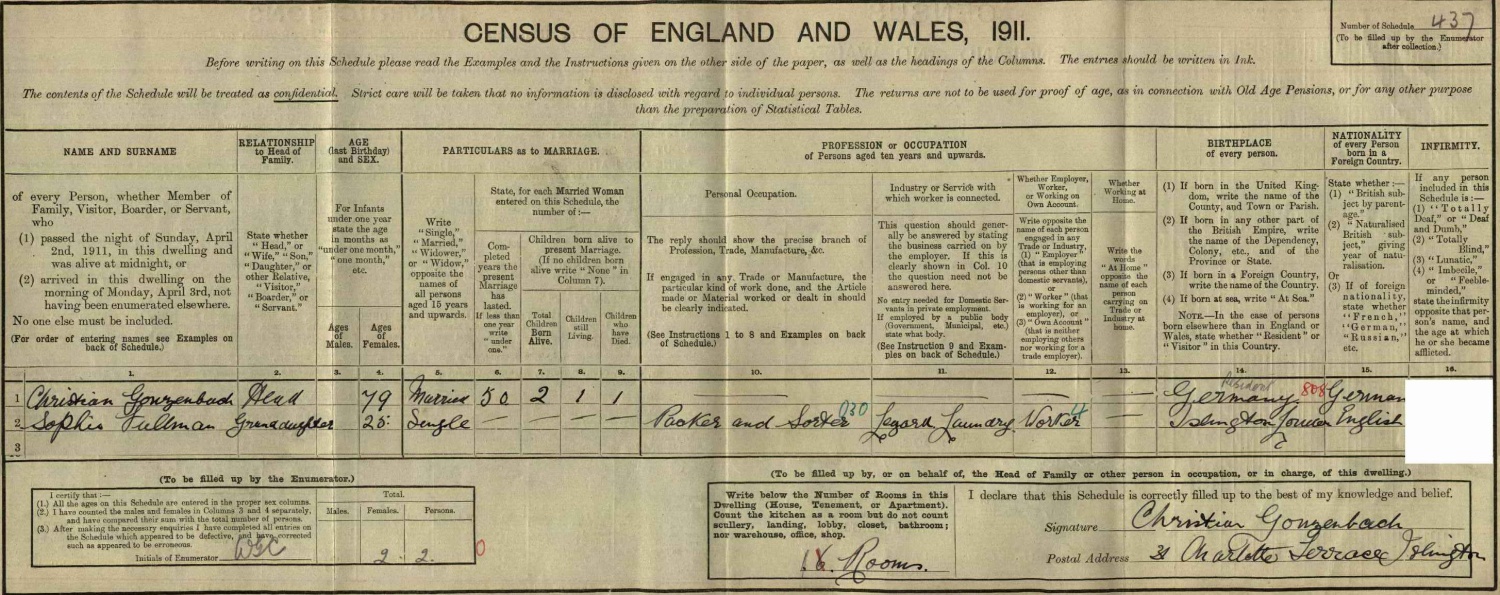 CENSUS OF ENGLAND AND WALES, 1911.
Number of Schedule 437
(To be filled up by the Enumerator after collection.)
Before writing on this Schedule please read the Examples and the Instructions given on the other side of the paper, as well as the headings of the Columns. The entries should be written in Ink.
The contents of the Schedule will be treated as confidential. Strict care will be taken that no information is disclosed with regard to individual persons. The returns are not to be used for proof of age, as in connection with Old Age Pensions, or for any other purpose
than the preparation of Statistical Tables.
NAME AND SURNAME
of every Person, whether Member of
Family, Visitor, Boarder, or Servant,
who
(1) passed the night of Sunday, April
2nd, 1911, in this dwelling and
was alive at midnight, or
(2) arrived in this dwelling on the
morning of Monday, April 3rd, not
having been enumerated elsewhere.
No one else must be included.
(For order of entering names see Examples on
back of Schedule.)
RELATIONSHIP
to Head of
Family.
State whether
"Head," or
"Wife," "Son,"
"Daughter," or
other Relative,
"Visitor,"
"Boarder," or
"Servant."
AGE
(last Birthday)
and SEX.
For Infants
under one year
state the age
in months as
"under one month,"
"one month,"
etc.
Ages
of
Males.
Ages
of
Females.
PARTICULARS as to MARRIAGE.
Write
"Single,"
"Married,"
"Widower,"
or "Widow,"
opposite the
names of
all persons
aged 15 years
and upwards.
State, for each Married Woman
entered on this Schedule, the
number of:—
Com-
pleted
years the
present
Marriage
has
lasted.
If less than
one year
write
"under
one."
Children born alive to
present Marriage.
(If no children born
alive write "None" in
Column 7).
Total
Children
Born
Alive.
Children
still
Living.
Children
who
have
Died.
PROFESSION or OCCUPATION
of Persons aged ten years and upwards.
Personal Occupation.
The reply should show the precise branch of
Profession, Trade, Manufacture, &c.
If engaged in any Trade or Manufacture, the
particular kind of work done, and the Article
made or Material worked or dealt in should
be clearly indicated.
(See Instructions 1 to 8 and Examples on back
of Schedule.)
Industry or Service with
which worker is connected.
This question should gener-
ally be answered by stating
the business carried on by
the employer. If this is
clearly shown in Col. 10
the question need not be
answered here.
No entry needed for Domestic Ser-
vants in private employment.
If employed by a public body
(Government, Municipal, etc.)
state what body.
(See Instruction 9 and Exam-
ples on back of Schedule.)
Whether Employer,
Worker,
or Working on
Own Account.
Write opposite the
name of each person
engaged in any
Trade or Industry,
(1) "Employer"
(that is employing
persons other than
domestic servants),
or
(2) "Worker" (that
is working for an
employer), or
(3) "Own Account"
(that is neither
employing others
nor working for a
trade employer).
Whether
Working at
Home.
Write the
words
"At Home"
opposite the
name of each
person
carrying on
Trade or
Industry at
home.
BIRTHPLACE
of every person.
(1) If born in the United King-
dom, write the name of the
County, and Town or Parish.
(2) If born in any other part of
the British Empire, write
the name of the Dependency,
Colony, etc., and of the
Province or State.
(3) If born in a Foreign Country,
write the name of the Country.
(4) If born at sea, write "At Sea."
NOTE.—In the case of persons
born elsewhere than in England or
Wales, state whether "Resident" or
"Visitor" in this Country.
NATIONALITY
of every Person
born in a
Foreign Country.
State whether:—
(1) "British sub-
ject by parent-
age."
(2) "Naturalised
British sub-
ject," giving
year of natu-
ralisation.
Or
(3) If of foreign
nationality,
state whether
"French,"
"German,"
"Russian,"
etc.
INFIRMITY.
If any person
included in this
Schedule is:—
(1) "Totally
Deaf," or "Deaf
and Dumb,"
(2) "Totally
Blind,"
(3) "Lunatic,"
(4) "Imbecile,"
or "Feeble-
minded,"
state the infirmity
opposite that per-
son's name, and
the age at which
he or she became
afflicted.
1. 2. 3. 4. 5. 6. 7. 8. 9. 10. 11. 12. 13. 14. 15. 16.
1 Christian Gonzenbach Head 79 Married 50 2 1 1 — — — — Germany Resident 808 German
2 Sophie Tullman Granddaughter 25 Single — — — — Packer and Sorter 030 Laundry Worker 4 — Islington London English
3
(To be filled up by the Enumerator.)
I certify that:—
(1.) All the ages on this Schedule are entered in the proper sex columns.
(2.) I have counted the males and females in Columns 3 and 4 separately,
and have compared their sum with the total number of persons.
(3.) After making the necessary enquiries I have completed all entries on
the Schedule which appeared to be defective, and have corrected
such as appeared to be erroneous.
Initials of Enumerator WGC
Total.
Males. Females. Persons.
2 2. 0
(To be filled up by, or on behalf of, the Head of Family or other person in occupation, or in charge, of this dwelling.)
Write below the Number of Rooms in this
Dwelling (House, Tenement, or Apartment).
Count the kitchen as a room but do not count
scullery, landing, lobby, closet, bathroom;
nor warehouse, office, shop.
Rooms.
I declare that this Schedule is correctly filled up to the best of my knowledge and belief.
Signature Christian Gonzenbach
Postal Address 31 Charlotte Terrace Islington